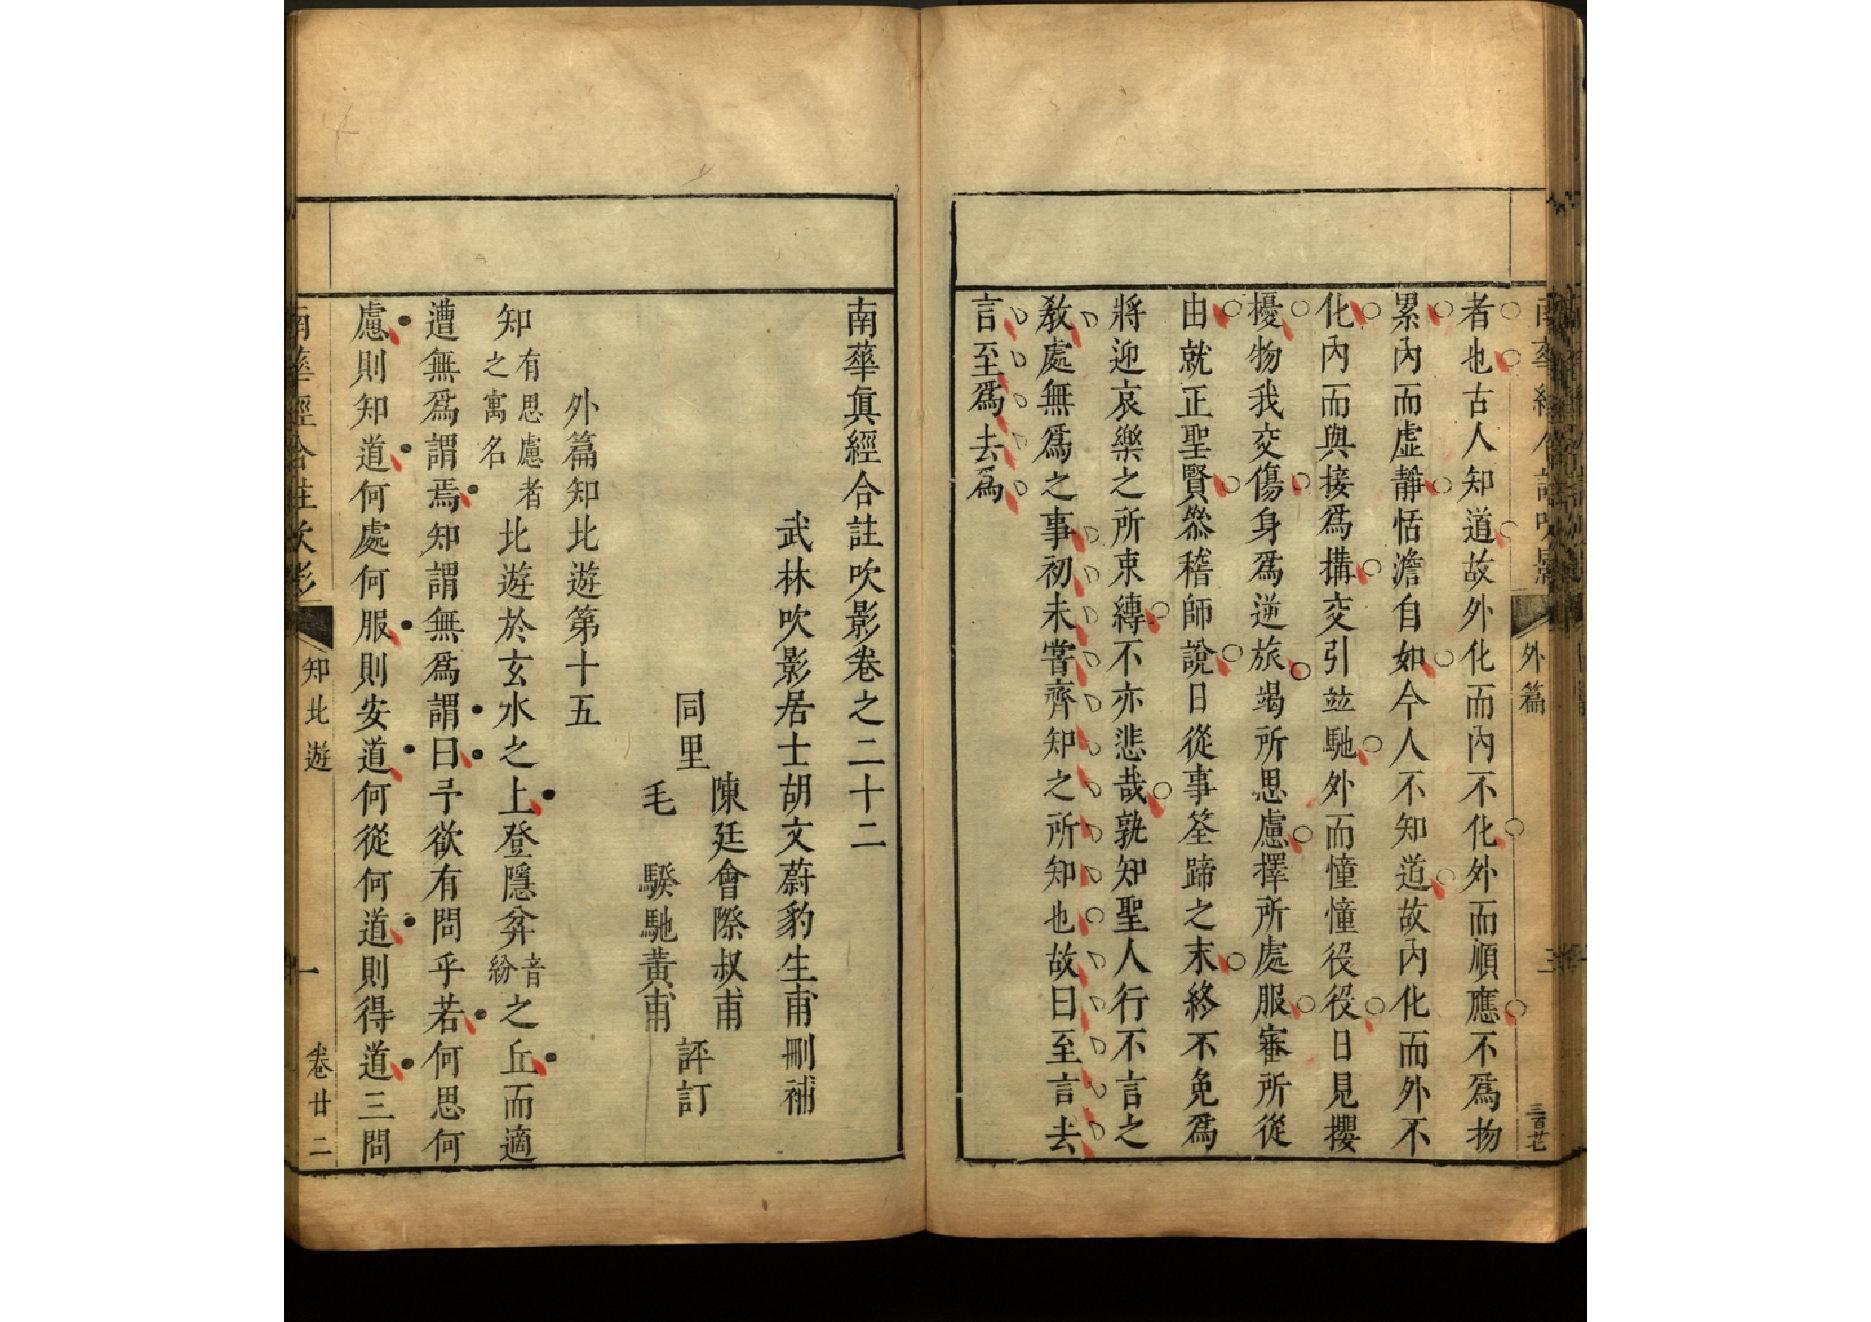 外篇
三百芒
者也古人知道故外化而內不化外而順應不爲物
累內而虛靜恬澹自如今人不知道故內化而外不
化內而與接爲搆交引竝馳外而憧憧役役日見攖
擾物我交傷身爲逆旅竭所思慮擇所處服審所從
由就正聖賢叅稽師說日從事筌蹄之末終不免爲
將迎哀樂之所束縛不亦悲哉孰知聖人行不言之
教處無爲之事初未嘗齊知之所知也故曰至言去
言至爲去爲
南華眞經合註吹影卷之二十二
武林吹影居士胡文蔚豹生甫刪補
同里
陳廷會際叔甫
毛 騤馳黃甫
評訂
外篇知北遊第十五
知有思慮者之寓名北遊於玄水之上登隱弅音紛之丘而適
遭無爲謂焉知謂無爲謂曰予欲有問乎若何思何
慮則知道何處何服則安道何從何道則得道三問
南華經合註吹影
知北遊
一
卷廿二